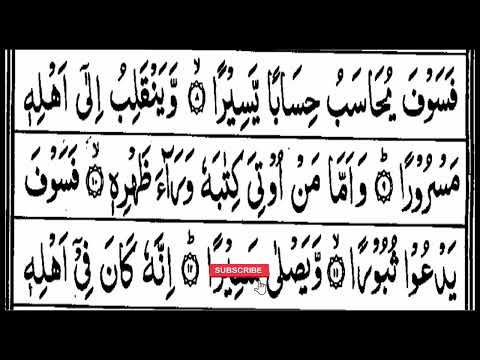 فَسَوْفَ يُحَاسَبُ حِسَابًا يَّسِيْرًا ۙ‏ ۝۸ وَّيَنْقَلِبُ اِلٰٓى اَهْلِهٖ
مَسْرُوْرًا ؕ‏ ۝۹ وَاَمَّا مَنْ اُوْتِىَ كِتٰبَهٗ وَرَآءَ ظَهْرِهٖ ۙ‏ ۝۱۰ فَسَوْفَ
يَدْعُوْا ثُبُوْرًا ۙ‏ ۝۱۱ وَّيَصْلٰى ؕ‏ ۝۱۲ اِنَّهٗ كَانَ فِىْٓ اَهْلِهٖ
SUBSCRIBE